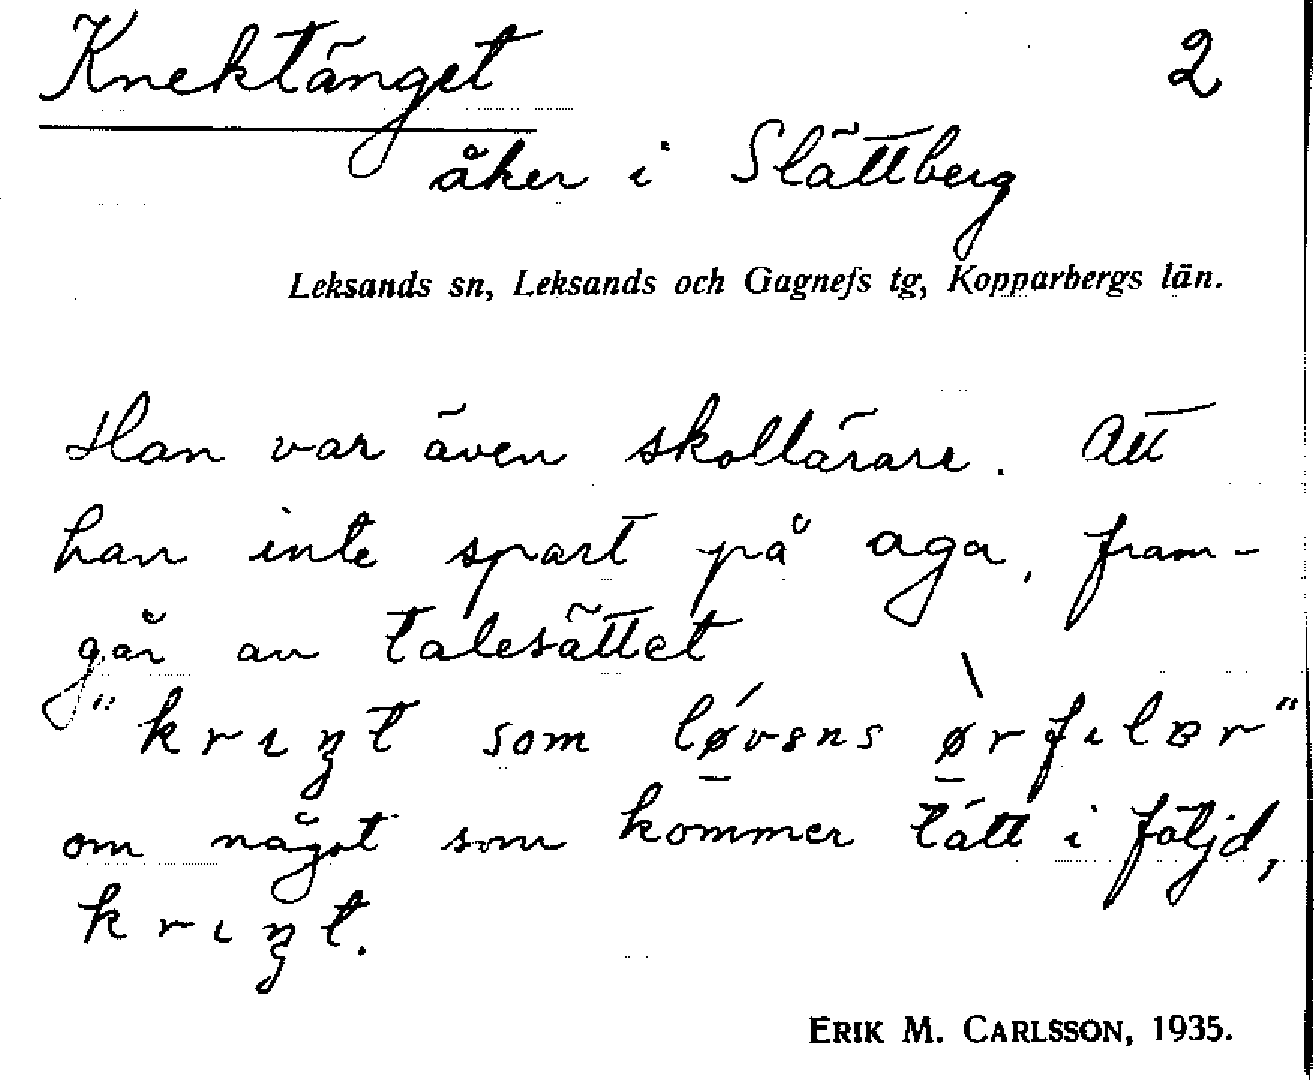 Knektänget 2
åker i Slättberg
Leksands sn, Leksands och Gagnefs tg, Kopparbergs län.
Han var även skollärare. Att
han inte spart på aga, fram-
går av talesättet
" som
om något som kommer tätt i följd,
ERIK M. CARLSSON, 1935.